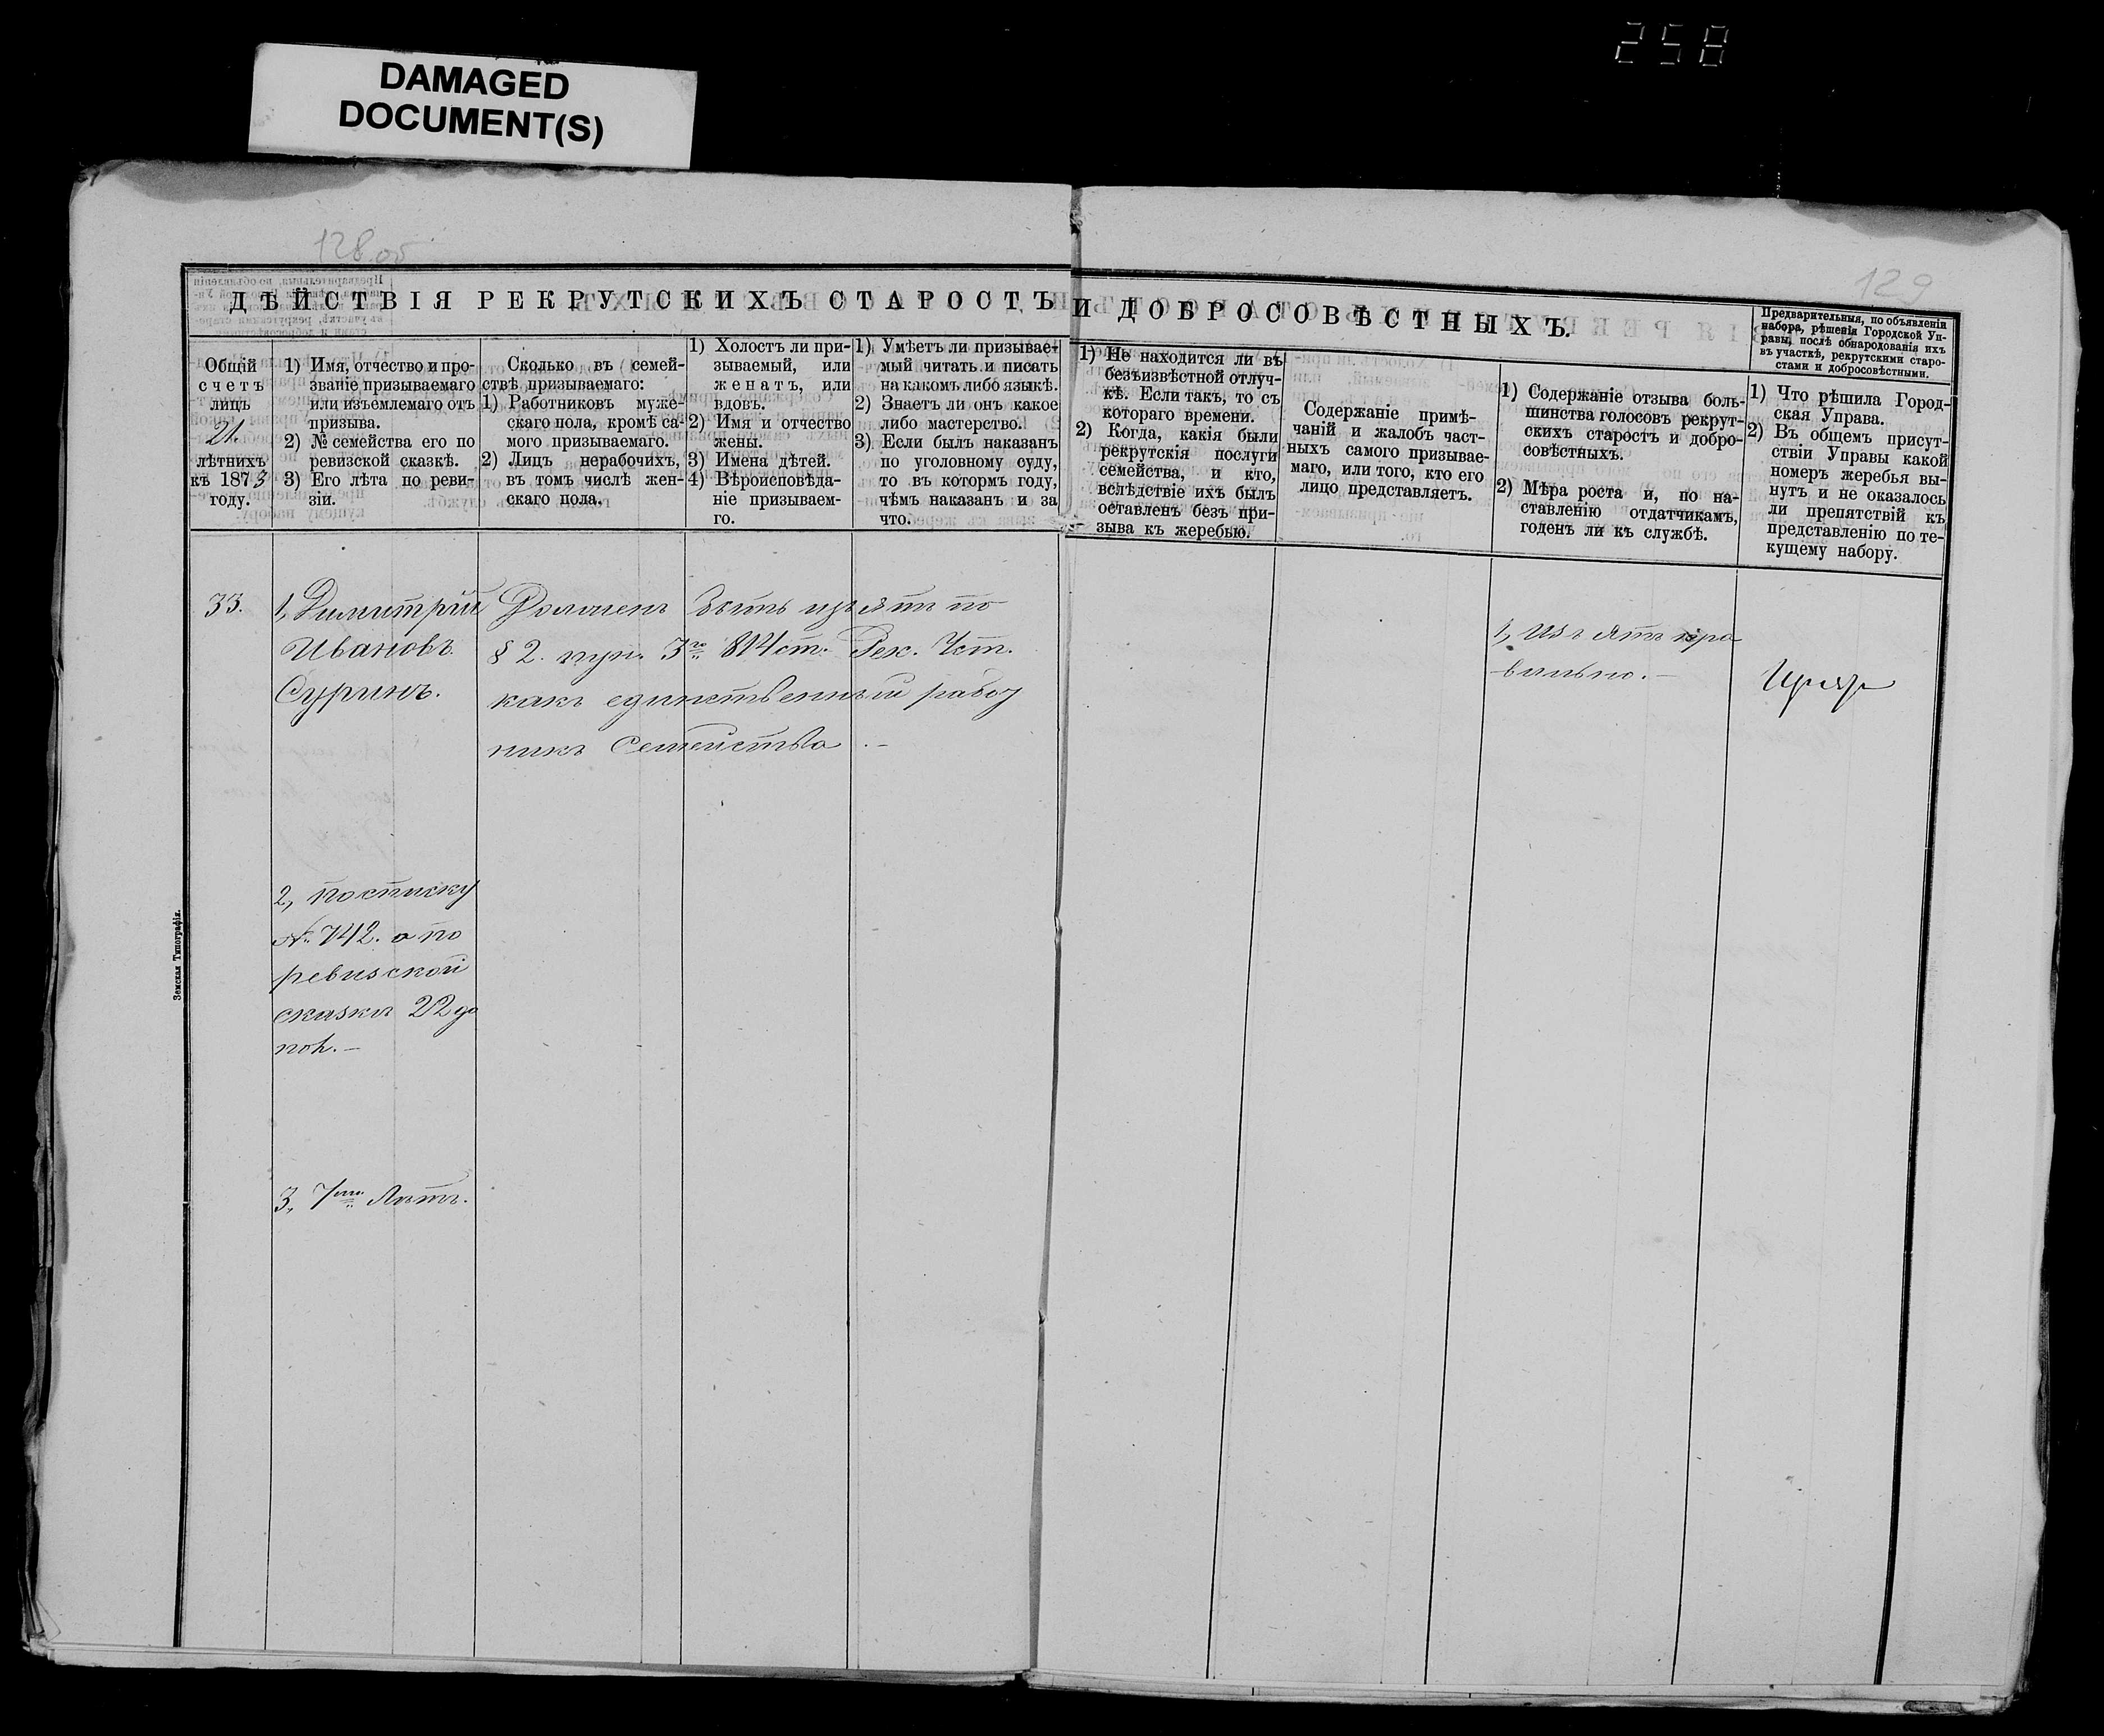 258
DAMAGED
DOCUMENT(S)
128 об
129
ДѢЙСТВІЯ РЕКРУТСКИХЪ СТАРОСТЪ И ДОБРОСОВѢСТНЫХЪ.
Предварительныя, по объявленіи
набора, рѣшенія Городской Уп-
равы, послѣ обнародованія ихъ
въ участкѣ, рекрутскими старо-
стами и добросовѣстными.
Общій
счетъ
лицъ
21.
лѣтнихъ
къ 1873
году.
1) Имя, отчество и про-
званіе призываемаго
или изъемлемаго отъ
призыва.
2) № семейства его по
ревизской сказкѣ.
3) Его лѣта по реви-
зіи.
Сколько въ семей-
ствѣ призываемаго:
1) Работниковъ муже-
скаго пола, кромѣ са-
мого призываемаго.
2) Лицъ нерабочихъ,
въ томъ числѣ жен-
скаго пола.
1) Холостъ ли при-
зываемый, или
женатъ, или
вдовъ.
2) Имя и отчество
жены.
3) Имена дѣтей.
4) Вѣроисповѣда-
ніе призываем-
го.
1) Умѣетъ ли призывае-
мый читать и писать
на какомъ либо языкѣ.
2) Знаетъ ли онъ какое
либо мастерство.
3) Если былъ наказанъ
по уголовному суду,
то въ котормъ году,
чѣмъ наказанъ и за
что.
1) Не находится ли въ
безъизвѣстной отлуч-
кѣ. Если такъ, то съ
котораго времени.
2) Когда, какія были
рекрутскія послуги
семейства, и кто,
вслѣдствіе ихъ былъ
оставленъ безъ при-
зыва къ жеребью.
Содержаніе примѣ-
чаній и жалобъ част-
ныхъ самого призывае-
маго, или того, кто его
лицо представляетъ.
1) Содержаніе отзыва боль-
шинства голосовъ рекрут-
скихъ старостъ и добро-
совѣстныхъ.
2) Мѣра роста и, по на-
ставленію отдатчикамъ,
годенъ ли къ службѣ.
1) Что рѣшила Город-
ская Управа.
2) Въ общемъ присут-
ствіи Управы какой
номеръ жеребья вы-
нутъ и не оказалось
ли препятствій къ
представленію по те-
кущему набору.
33.
1, Димитрій
Ивановъ
Суринъ.
Должен быть изъятъ по
§ 2. пун. 3го 814 ст. Рек. Уст.
какъ единственный работ
никъ Семейства. –
1, Изъятъ пра
вильно. –
2, по списку
№ 742. а по
ревизской
сказкѣ 22 до
пол. –
3, 7ми Лѣтъ.
Земская Типографія.